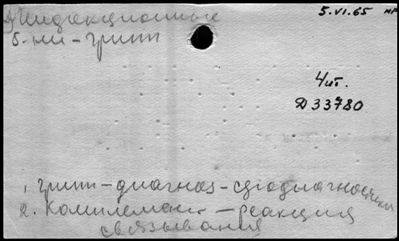 Инфекционные
б-ни - грипп
5.VI.65
4 чт.
Д 33780
1. Грипп - диагноз - сродиагностики
2. Комплемент - реакция
связывания